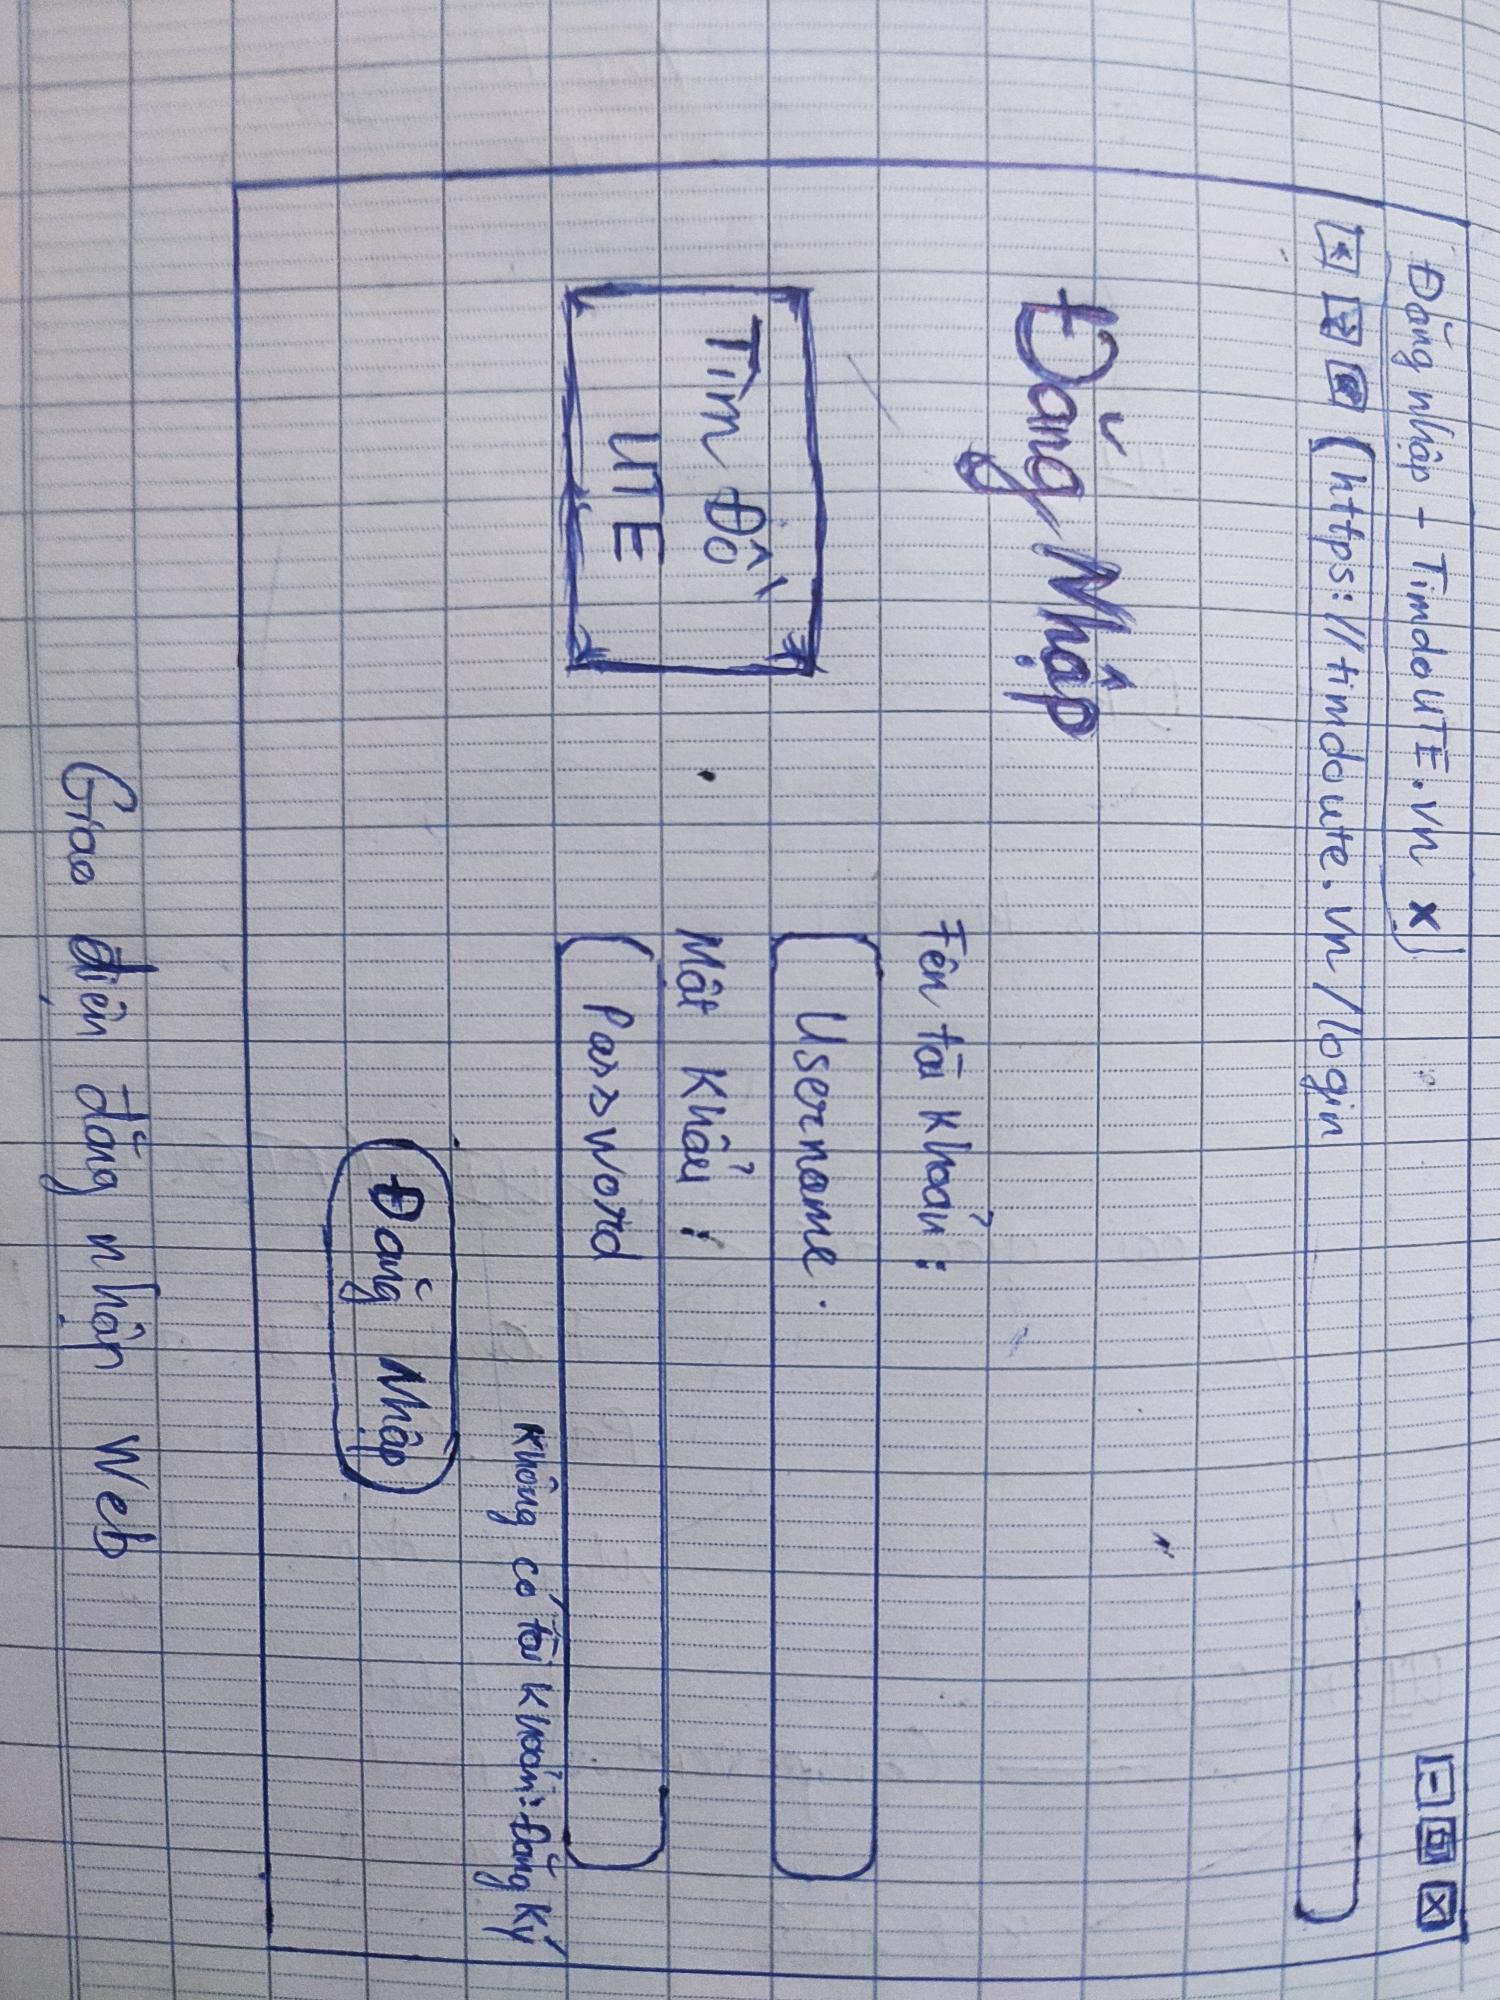 Đăng nhập - TimdoUTE.vn x
https://timdoute.vn/login
Đăng Nhập
Tên tài khoản :
Username
Tìm Đồ
UTE
Mật Khẩu :
Password
Không có tài khoản: Đăng Ký
Đăng Nhập
Giao điện đăng nhập Web